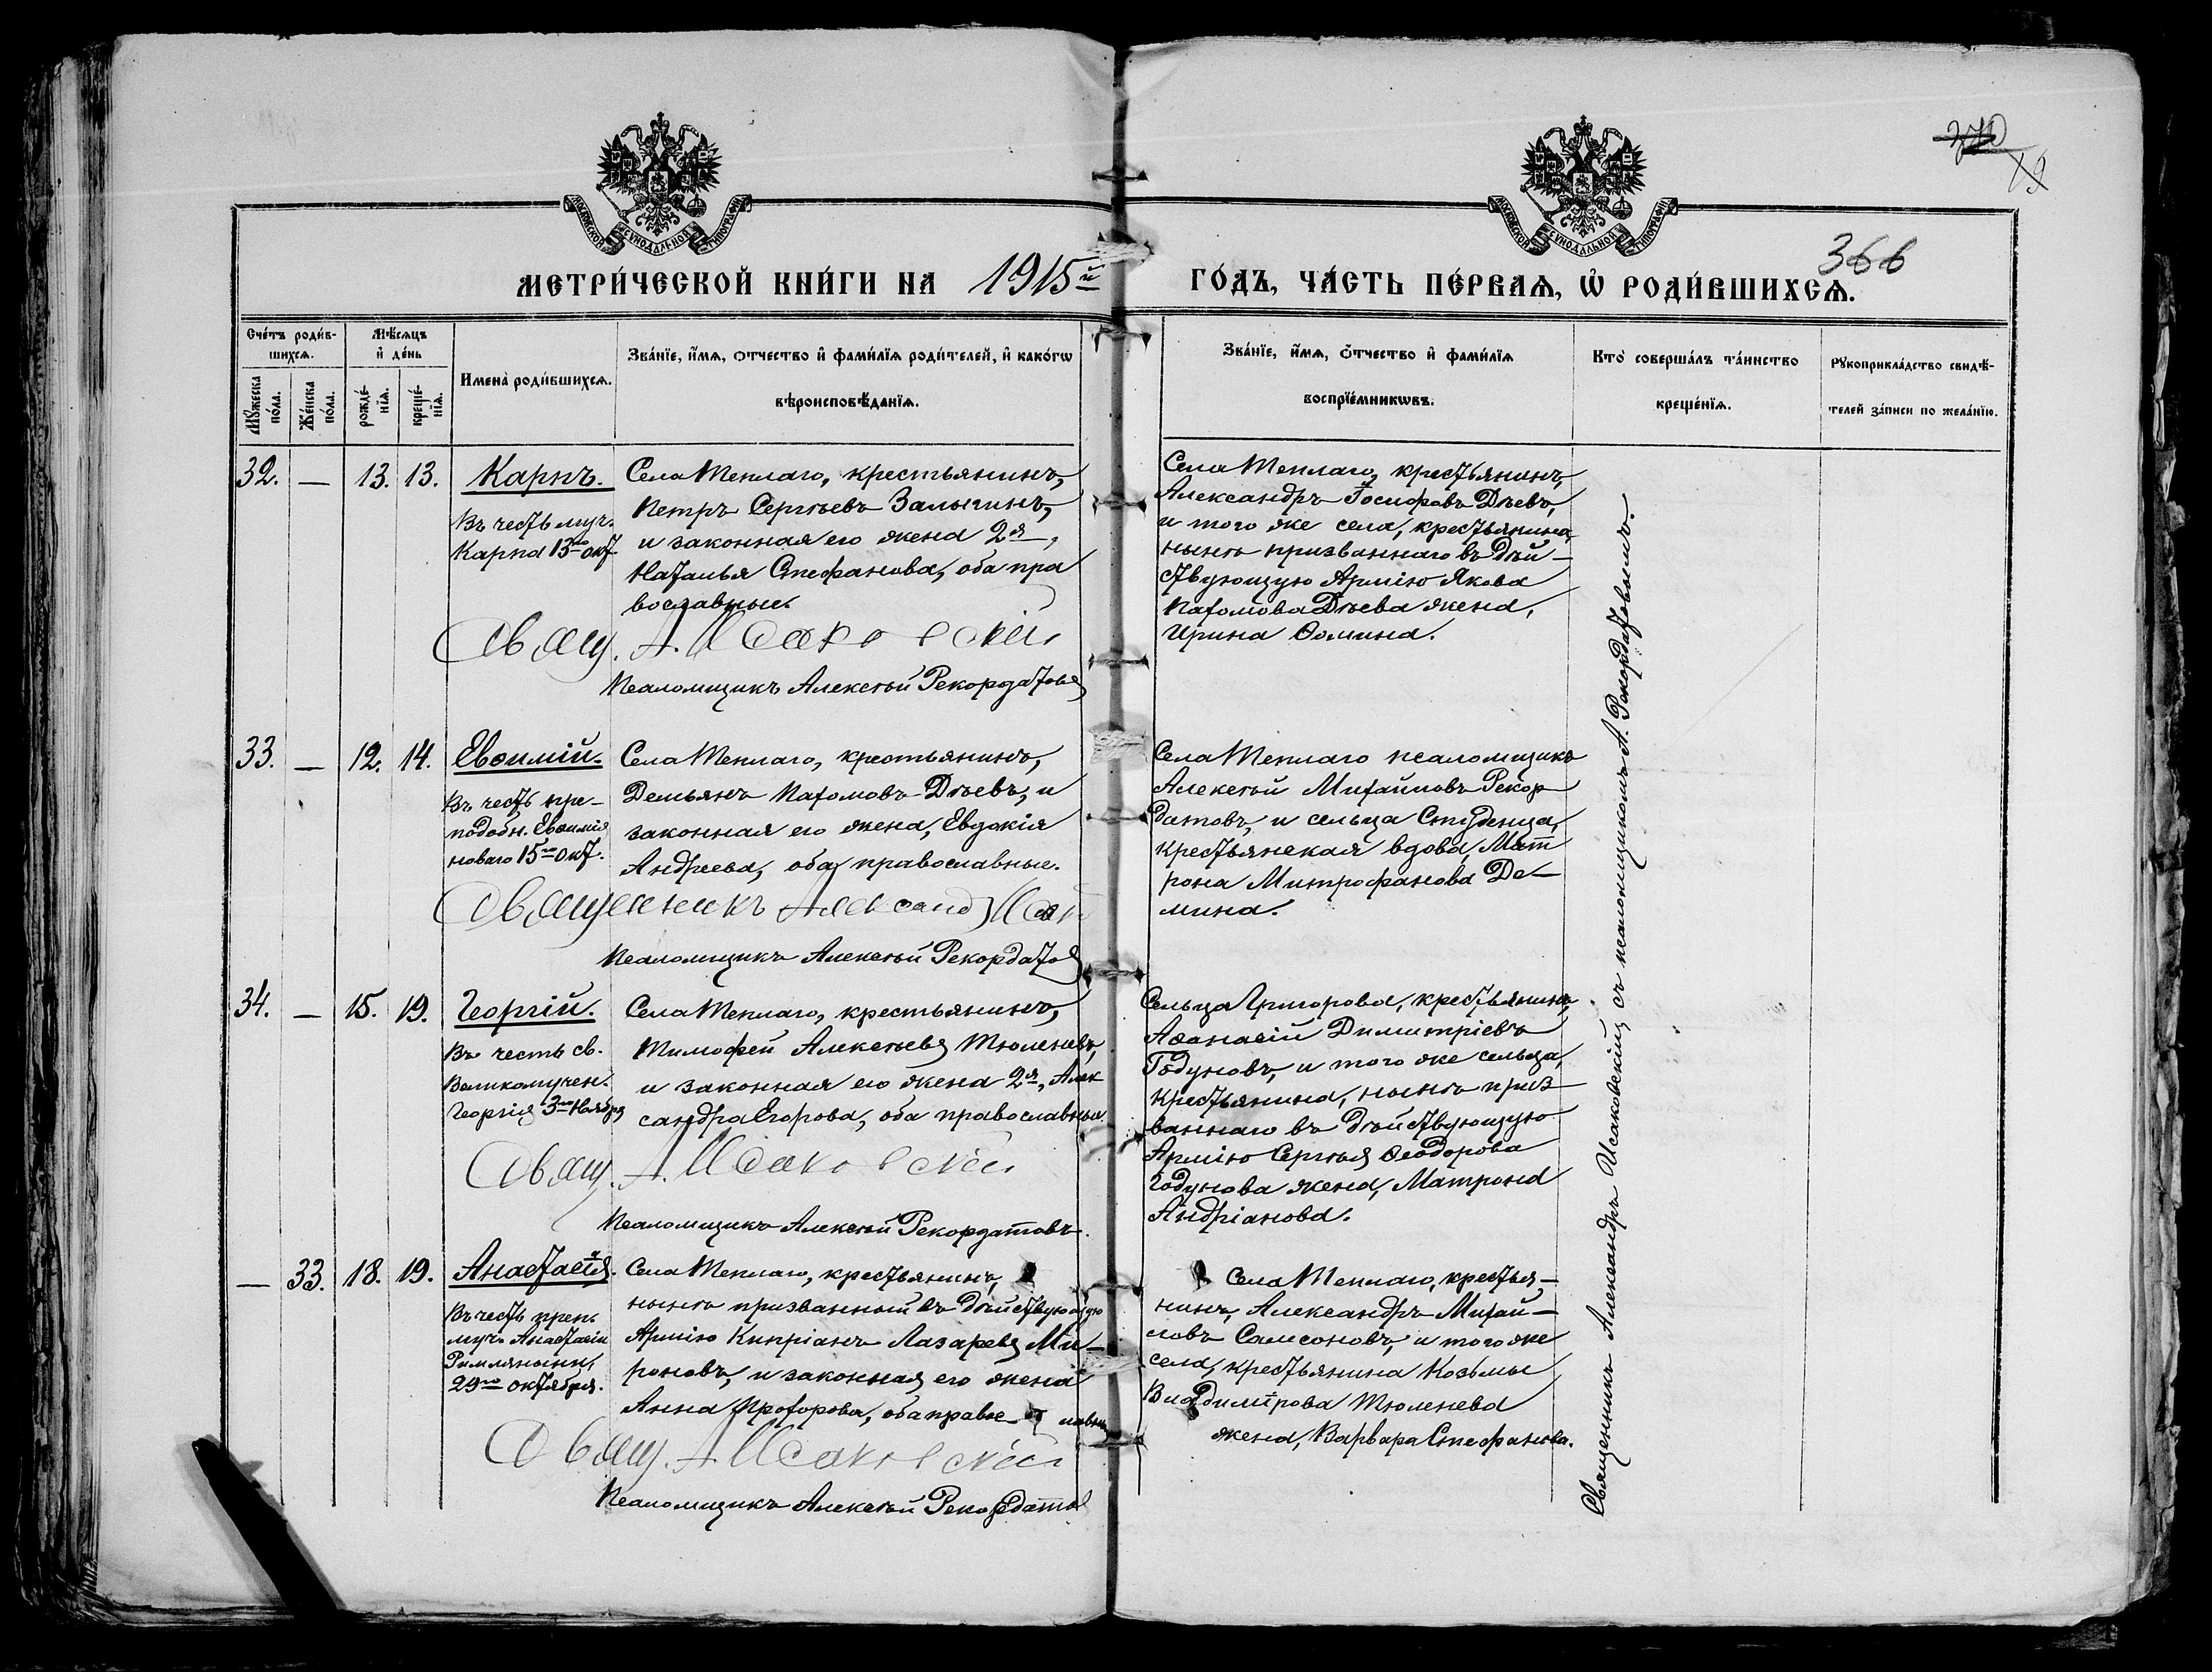 270
19
366
МОСКОВСКОЙ СѴНОДАЛЬНОЙ ТИПОГРАФІИ
МОСКОВСКОЙ СѴНОДАЛЬНОЙ ТИПОГРАФІИ
МЕТРИ́ЧЕСКОЙ КНИ́ГИ НА 1915й ГО́ДЪ, ЧА́СТЬ ПЕ́РВАѦ, Ѡ҆ РОДИ́ВШИХСѦ.
Сче́тъ роди́в-
шихсѧ.
Мѣ́сѧцъ
и҆ де́нь
Имена̀ роди́вшихсѧ.
Зва́нїе, и҆́мѧ, ѻ҆́тчество и҆ фами́лїѧ роди́телей, и҆ како́гѡ
вѣроисповѣ́данїѧ.
Мꙋ́жеска
по́ла.
Же́нска
по́ла.
рожде́-
нїѧ.
креще́-
нїѧ.
Зва́нїе, и҆́мѧ, ѻ҆́тчество и҆ фами́лїѧ
воспрїе́мникѡвъ.
Кто̀ соверша́лъ та́инство
креще́нїѧ.
Рꙋкоприкла́дство свидѣ́-
телей за́писи по жела́нїю.
32. — 13. 13. Карпъ.
Въ честь муч.
Карпа 13го окт.
Села Теплаго, крестьянинъ,
Петръ Сергѣевъ Залыгинъ,
и законная его жена 2я,
Наталья Стефанова, оба пра
вославные.
Свящ. А. Исаковскій
Псаломщикъ Алексѣй Рекордатовъ
Села Теплаго, крестьянинъ,
Александръ Іосифовъ Дѣевъ,
и того же села, крестьянина,
нынѣ призваннаго въ Дѣй-
ствующую Армію Якова
Пахомова Дѣева жена,
Ирина Ѳомина.
33. — 12. 14. Евѳимій.
Въ честь пре-
подобн. Евѳимія
новаго 15го Окт.
Села Теплаго, крестьянинъ,
Демьянъ Пахомовъ Дѣевъ, и
законная его жена, Евдокія
Андреева, оба православные.
Священникъ Александ Исак
Псаломщикъ Алексѣй Рекордатов
Села Теплаго псаломщикъ
Алексѣй Михайловъ Рекор
датовъ, и сельца Студенца,
крестьянская вдова, Мат
рона Митрофанова Де-
мина.
34. — 15. 19. Георгій.
Въ честь св.
Великомучен.
Георгія 3го Ноября
Села Теплаго, крестьянинъ,
Тимофей Алексѣевъ Тюленевъ,
и законная его жена 2я, Алек
сандра Егорова, оба православные
Свящ. А. Исаковскій
Псаломщикъ Алексѣй Рекордатовъ.
Сельца Григорова, крестьянинъ,
Аѳанасій Димитріевъ
Годуновъ, и того же сельца,
крестьянина, нынѣ приз
ваннаго въ дѣйствующую
Армію Сергѣя Ѳеодорова
Годунова жена, Матрона
Андріанова.
— 33. 18. 19. Анастасія.
Въ честь преп.
муч. Анастасіи
Римляныни,
29го октября.
Села Теплаго, крестьянинъ,
нынѣ призванный въ дѣйствующую
Армію Кипріанъ Лазаревъ Ми-
роновъ, и законная его жена
Анна Прохорова, оба правос лавны
Свящ. А. Исаковскій
Псаломщикъ Алексѣй Рекордатов
Села Теплаго, крестья-
нинъ, Александръ Михай-
ловъ Самсоновъ, и того же
села, крестьянина Козьмы
Владимірова Тюленева
жена, Варвара Стефанова.
Священникъ Александръ Исаковскій съ псаломщикомъ А. Рекордатовымъ.